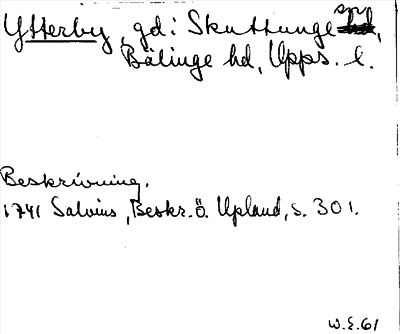 Ytterby, gd i Skuttunge sn,
Bälinge hd, Upps. l.
Beskrivning.
1741 Salvius, Beskr. ö. Upland, s. 301.
W.E. 61